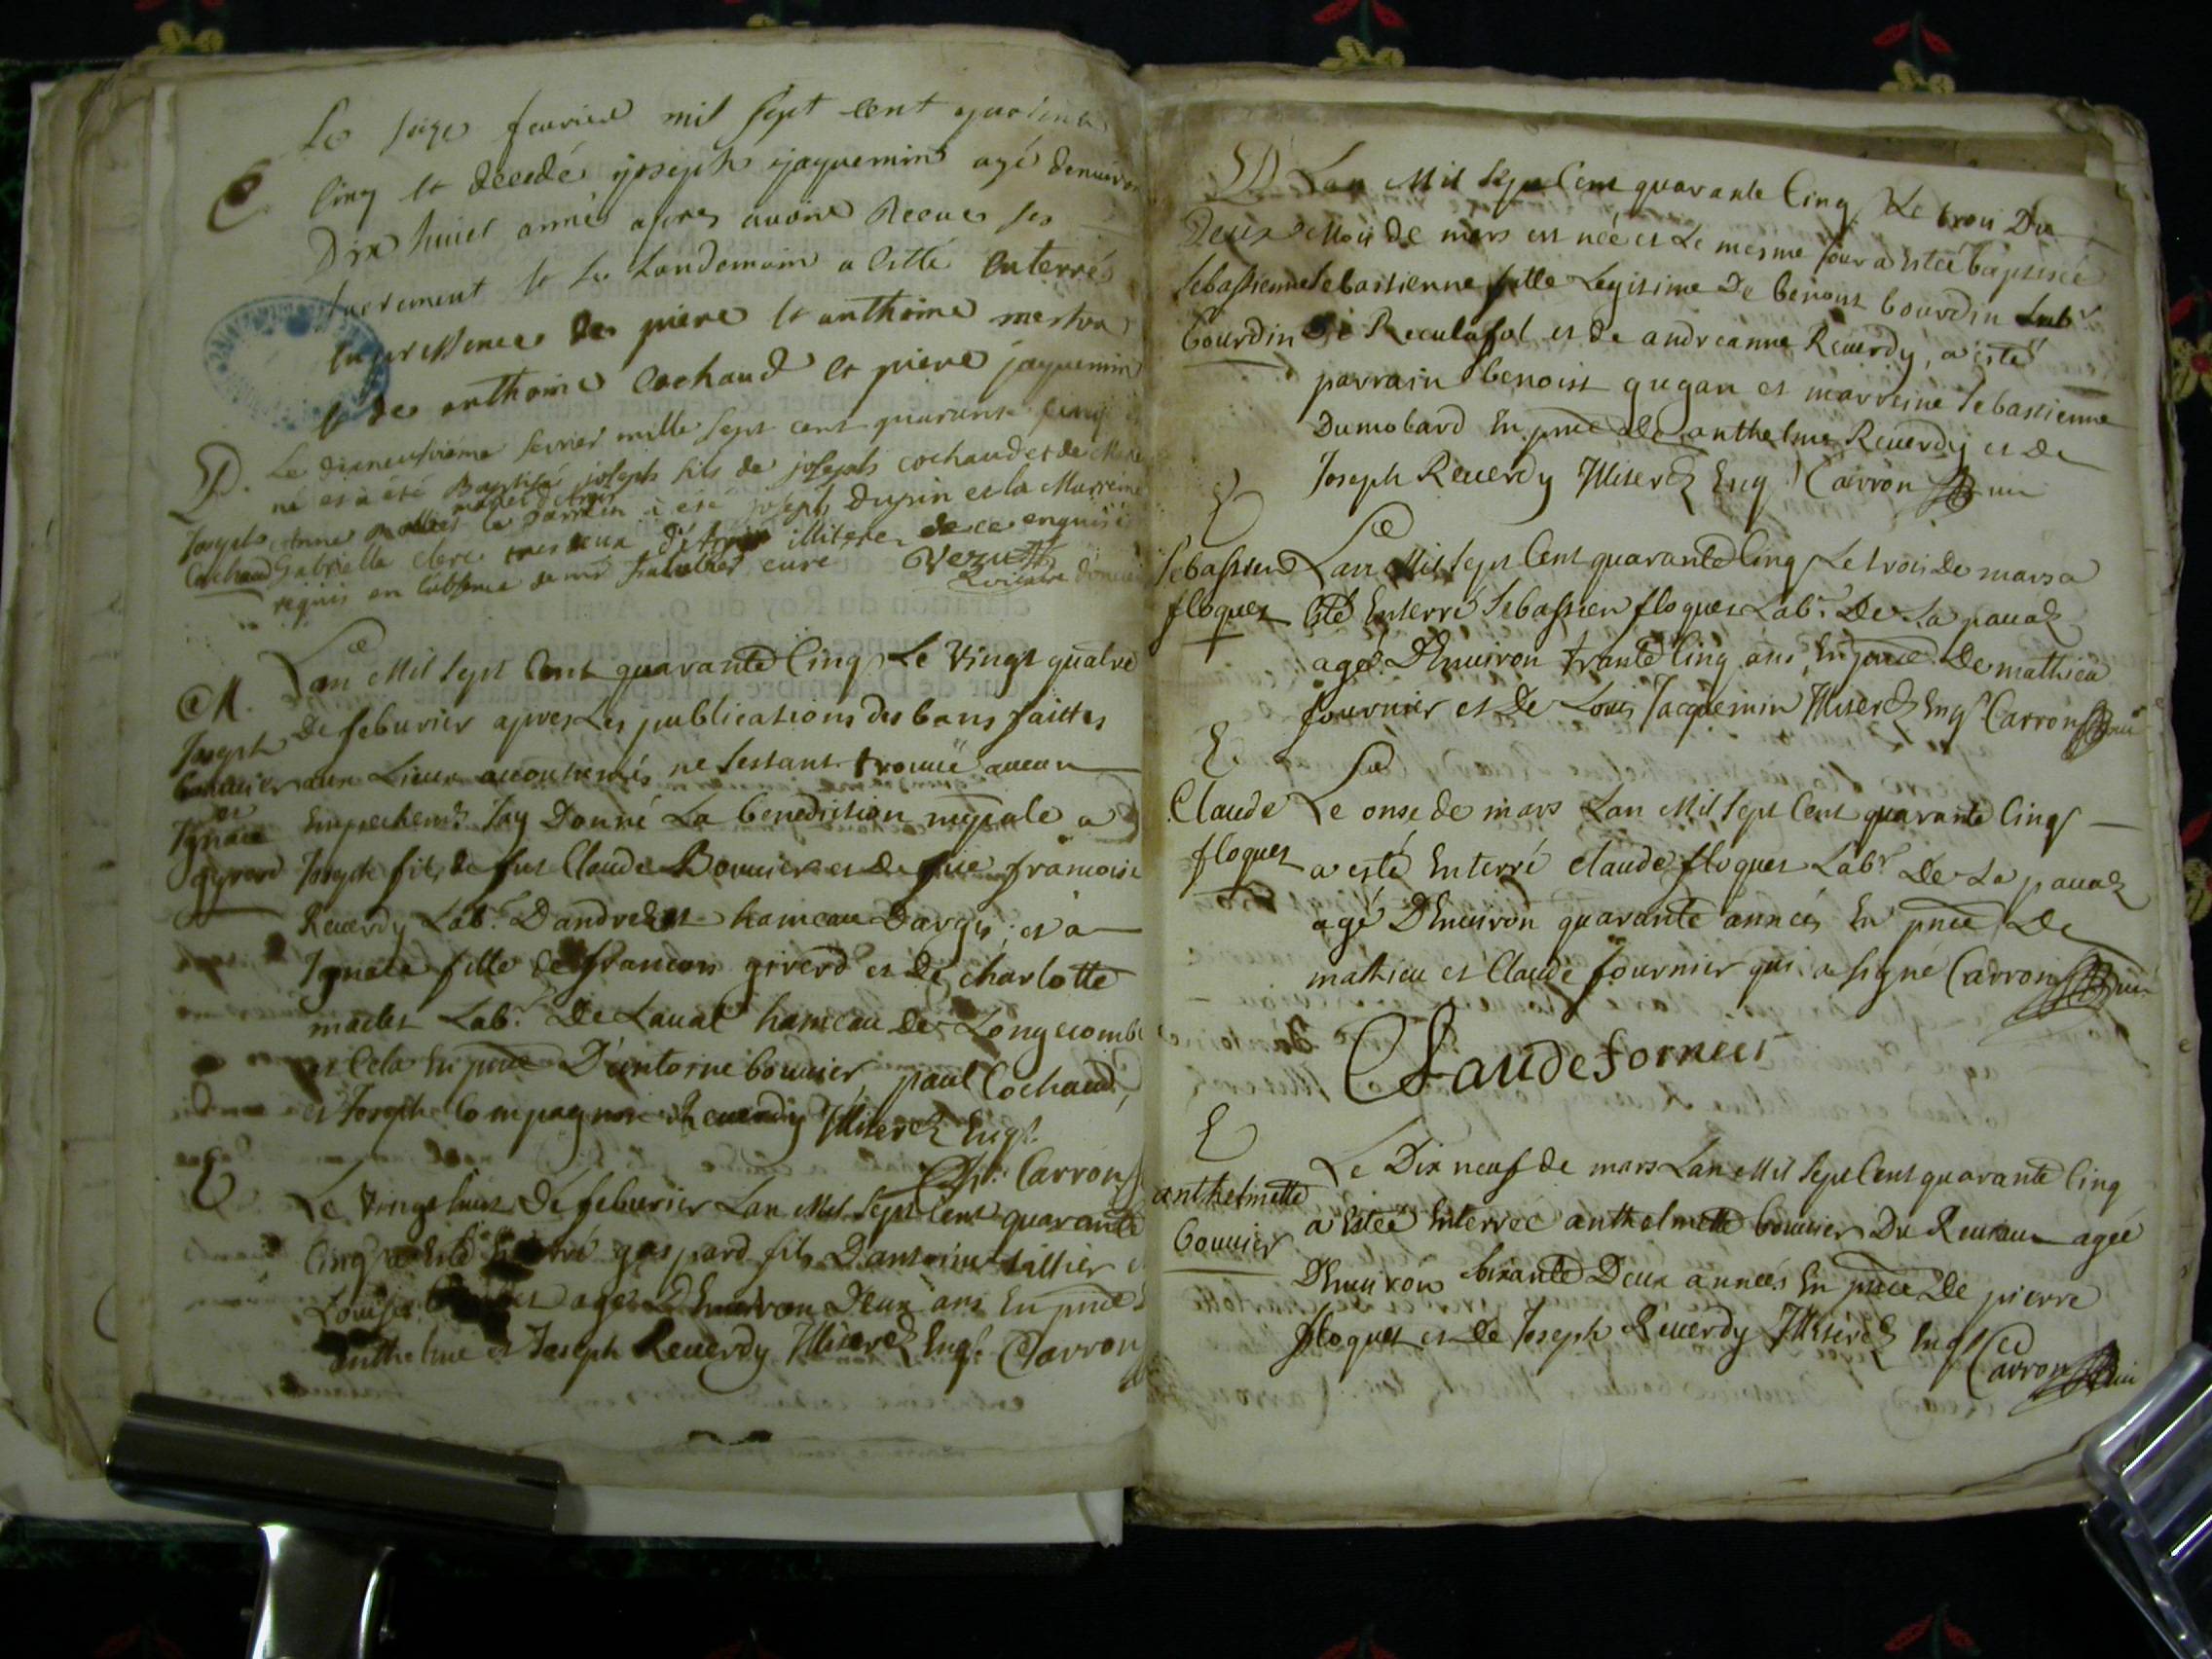 Le seize feurier mil sept cent quarente
E. cinq et decedé joseph jaquemin agé denuiron
Dix huict anné apres auoire Receu ses
sacrement et le Landemain a esté enterré
en pressence de piere et anthoine
et de anthoine Cochaud et piere jaquemin
B. Le dixneuvieme fevrier mille sept cent quarante cinq
né et a été Baptisé joseph fils de joseph cochaud et de
Joseph Cochaud
Anne le parrein a été joseph Dupin et la Marreine
Gabrielle Clerc tous deux illiteré de ce enquis
requis en l'absence de mr curé Vezu
vicaire
M. Lan Mil sept Cent quarante Cinq Le Vingt quatre
Joseph Bouuier et Ygnace gyrerd
De feburier apres Les publications des bans faittes
aux Lieux accoutumés ne sestant trouué aucun
Empechemt Jay Donné La benediction nuptiale a
Joseph fils de feu Claude Bouuier et De fue francoise
Reuerdy Labr. Dandrest hameau Dargis, et a
Ygnace fille de francois girerd et De charlotte
maclet Labr. De Laual hameau De Longecombe
et Cela En pnce D'antoine bouuier, paul Cochaud,
et Joseph Compagnon Reuerdy Illiserez Enqs.
Carron
E Le Vingt huit De feburier Lan Mil Sept Cent quarante
Cinq a Esté Enterré gaspard fils Dantoine tillier
Louise agé Denuiron Deux ans En pnce
anthelme et Joseph Reuerdy Illiserez Enqs. Carron
B Lan Mil Sept Cent quarante Cinq Le trois Du
Sebastienne bourdin
Mois de mars est née et Le mesme Jour a Estée baptisée
Sebastienne fille Legitime De benoist bourdin Labr
De Reculafol et de andreanne Reuerdy, a esté
parrain benoist gugan et marreine Sebastienne
Dumobard En pnce De anthelme Reuerdy et De
Joseph Reuerdy Illiserez Enqs Carron
E
Sebastien floquet
Lan Mil Sept Cent quarante Cinq Le trois De mars a
Esté Enterré Sebastien floquet Labr. De La pauaz
agé DEnuiron trante Cinq ans En pnce De mathieu
fournier et De Louis Jacquemin Illiserez Enqs Carron
E
Claude floquet
Le onse de mars Lan Mil Sept Cent quarante Cinq
a esté Enterré claude floquet Labr. De La pauaz
agé DEnuiron quarante années En pnce De
mathieu et Claude fournier qui a signé Carron
Claude fornier
E
anthelmette bouuier
Le Dix neuf de mars Lan Mil Sept Cent quarante Cinq
a Estée Enterrée anthelmette bouuier Du agée
DEnuiron soixante Deux années En pnce De pierre
floquet et De Joseph Reuerdy Illiserez Enqs
Carron